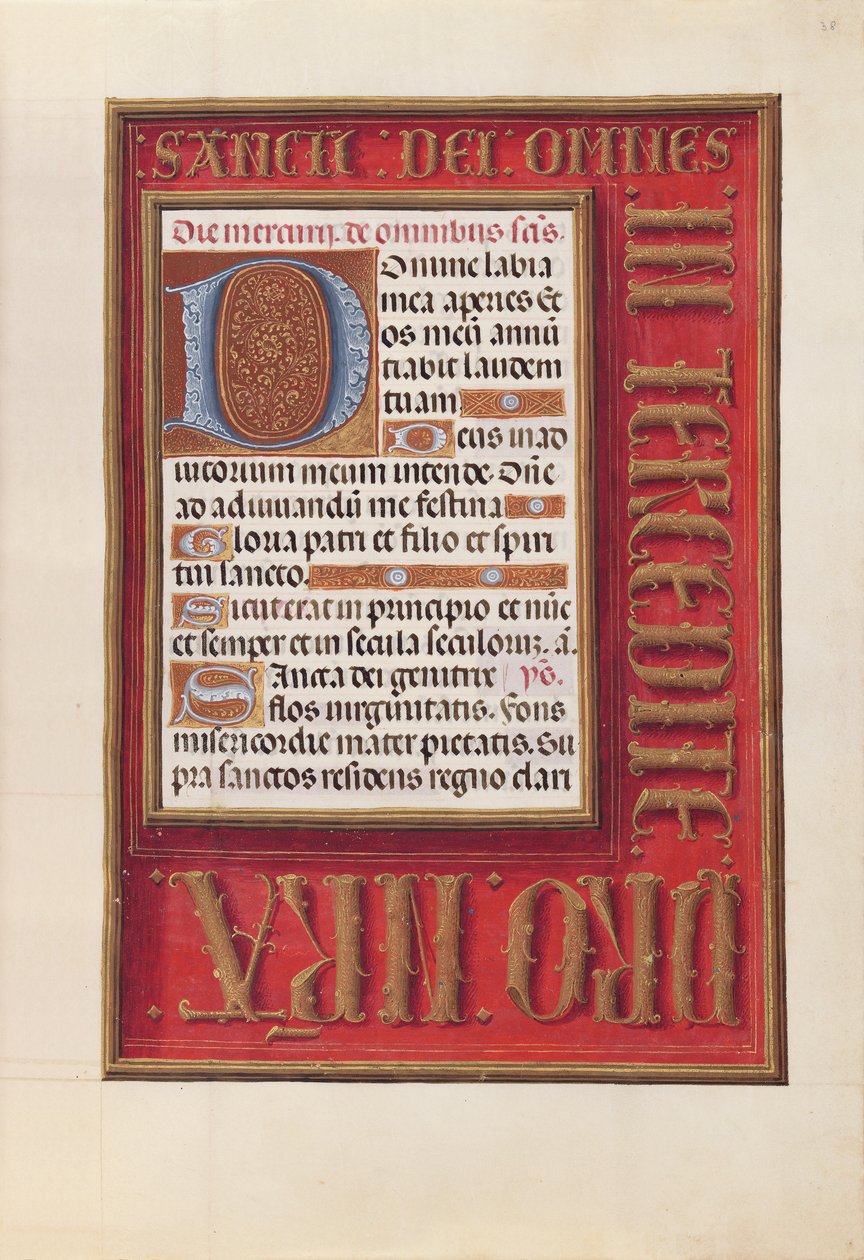 38
SANCTI : DEI : OMNES
IN TERCEDITE
PRO · NR̄A
Die mercurij. de omnibus sc̃is.
Domine labia
mea aperies Et
os meũ annũ
tiabit laudem
tuam.
Deus in ad
iutorium meum intende. Dñe
ad adiuuandũ me festina
Gloria patri et filio et spiri
tui sancto.
Sicut erat in principio et nũc
et semper et in secula seculoruꝫ. a͂.
SAncta dei genitrix ỹs.
flos uirginitatis. Fons
misericordie mater pietatis. Su
pra sanctos residens regno clari